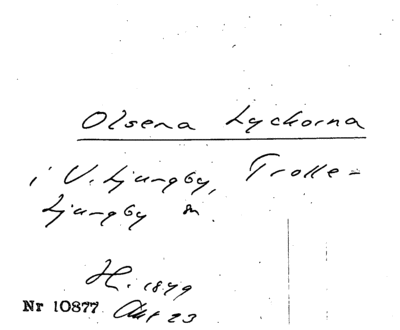 Olsena Lyckorna
i V. Ljungby, Trolle-
Ljungby sn.
H. 1879
Nr 10877 Akt 23